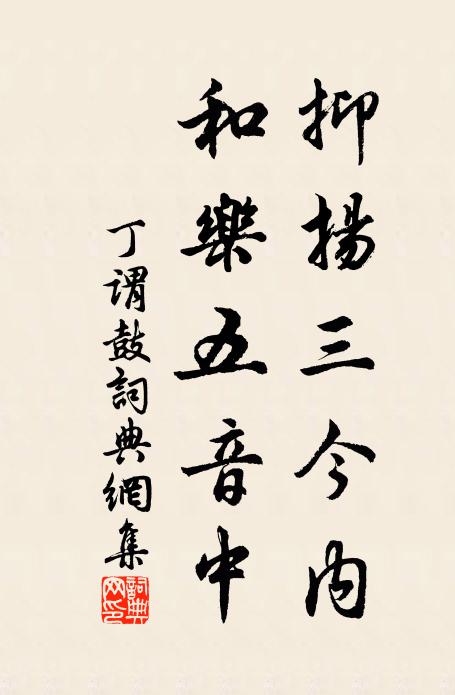 抑揚三今內
和樂五音中
丁謂鼓詞典網集
詞典網印